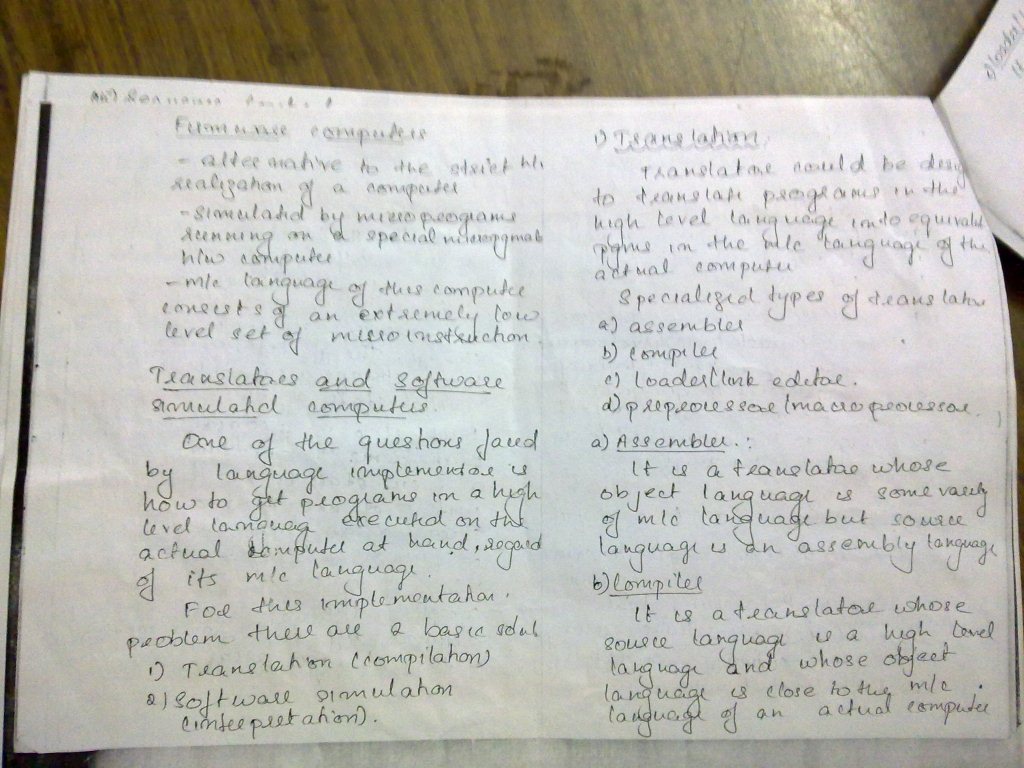 Firmware computers
- alternative to the strict h/w
realization of a computer
- simulated by microprograms
running on a special
h/w computer
- m/c language of this computer
consists of an extremely low
level set of microinstruction.
Translators and software
simulated computers.
One of the questions faced
by language implementor is
how to get programs in a high
level language executed on the
actual computer at hand, regard
of its m/c language.
For this implementation.
problem there are 2 basic solu
1) Translation (compilation)
2) Software simulation
(interpretation).
1) Translation.
Translator could be desig
to translate programs in the
high level language into equivalent
pgms in the m/c language of the
actual computer
Specialized types of translator
a) assembler
b) compiler
c) loader/link editor.
d) preprocessor/macroprocessor.
a) Assembler.:
It is a translator whose
object language is some variety
of m/c language but source
language is an assembly language
b) Compiler
It is a translator whose
source language is a high level
language and whose object
language is close to the m/c
language of an actual computer